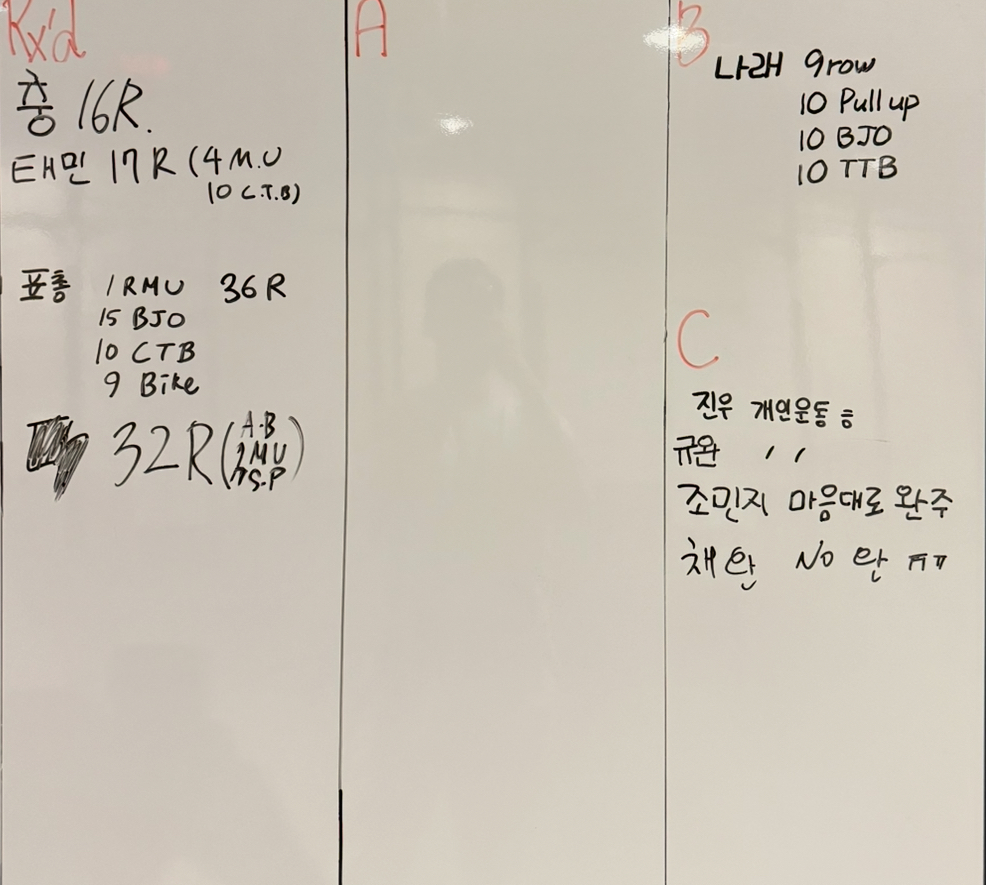 Rx'd
충 16R.
태민 17R (4 M.U
10 C.T.B)
표총 1 RMU 36R
15 BJO
10 CTB
9 Bike
32R (A.B
MU
S.P)
A
B
나래 9row
10 Pull up
10 BJO
10 TTB
C
진우 개인운동 흠
규완 〃
조민지 마음대로 완주
채완 No 완 ㅠㅠ